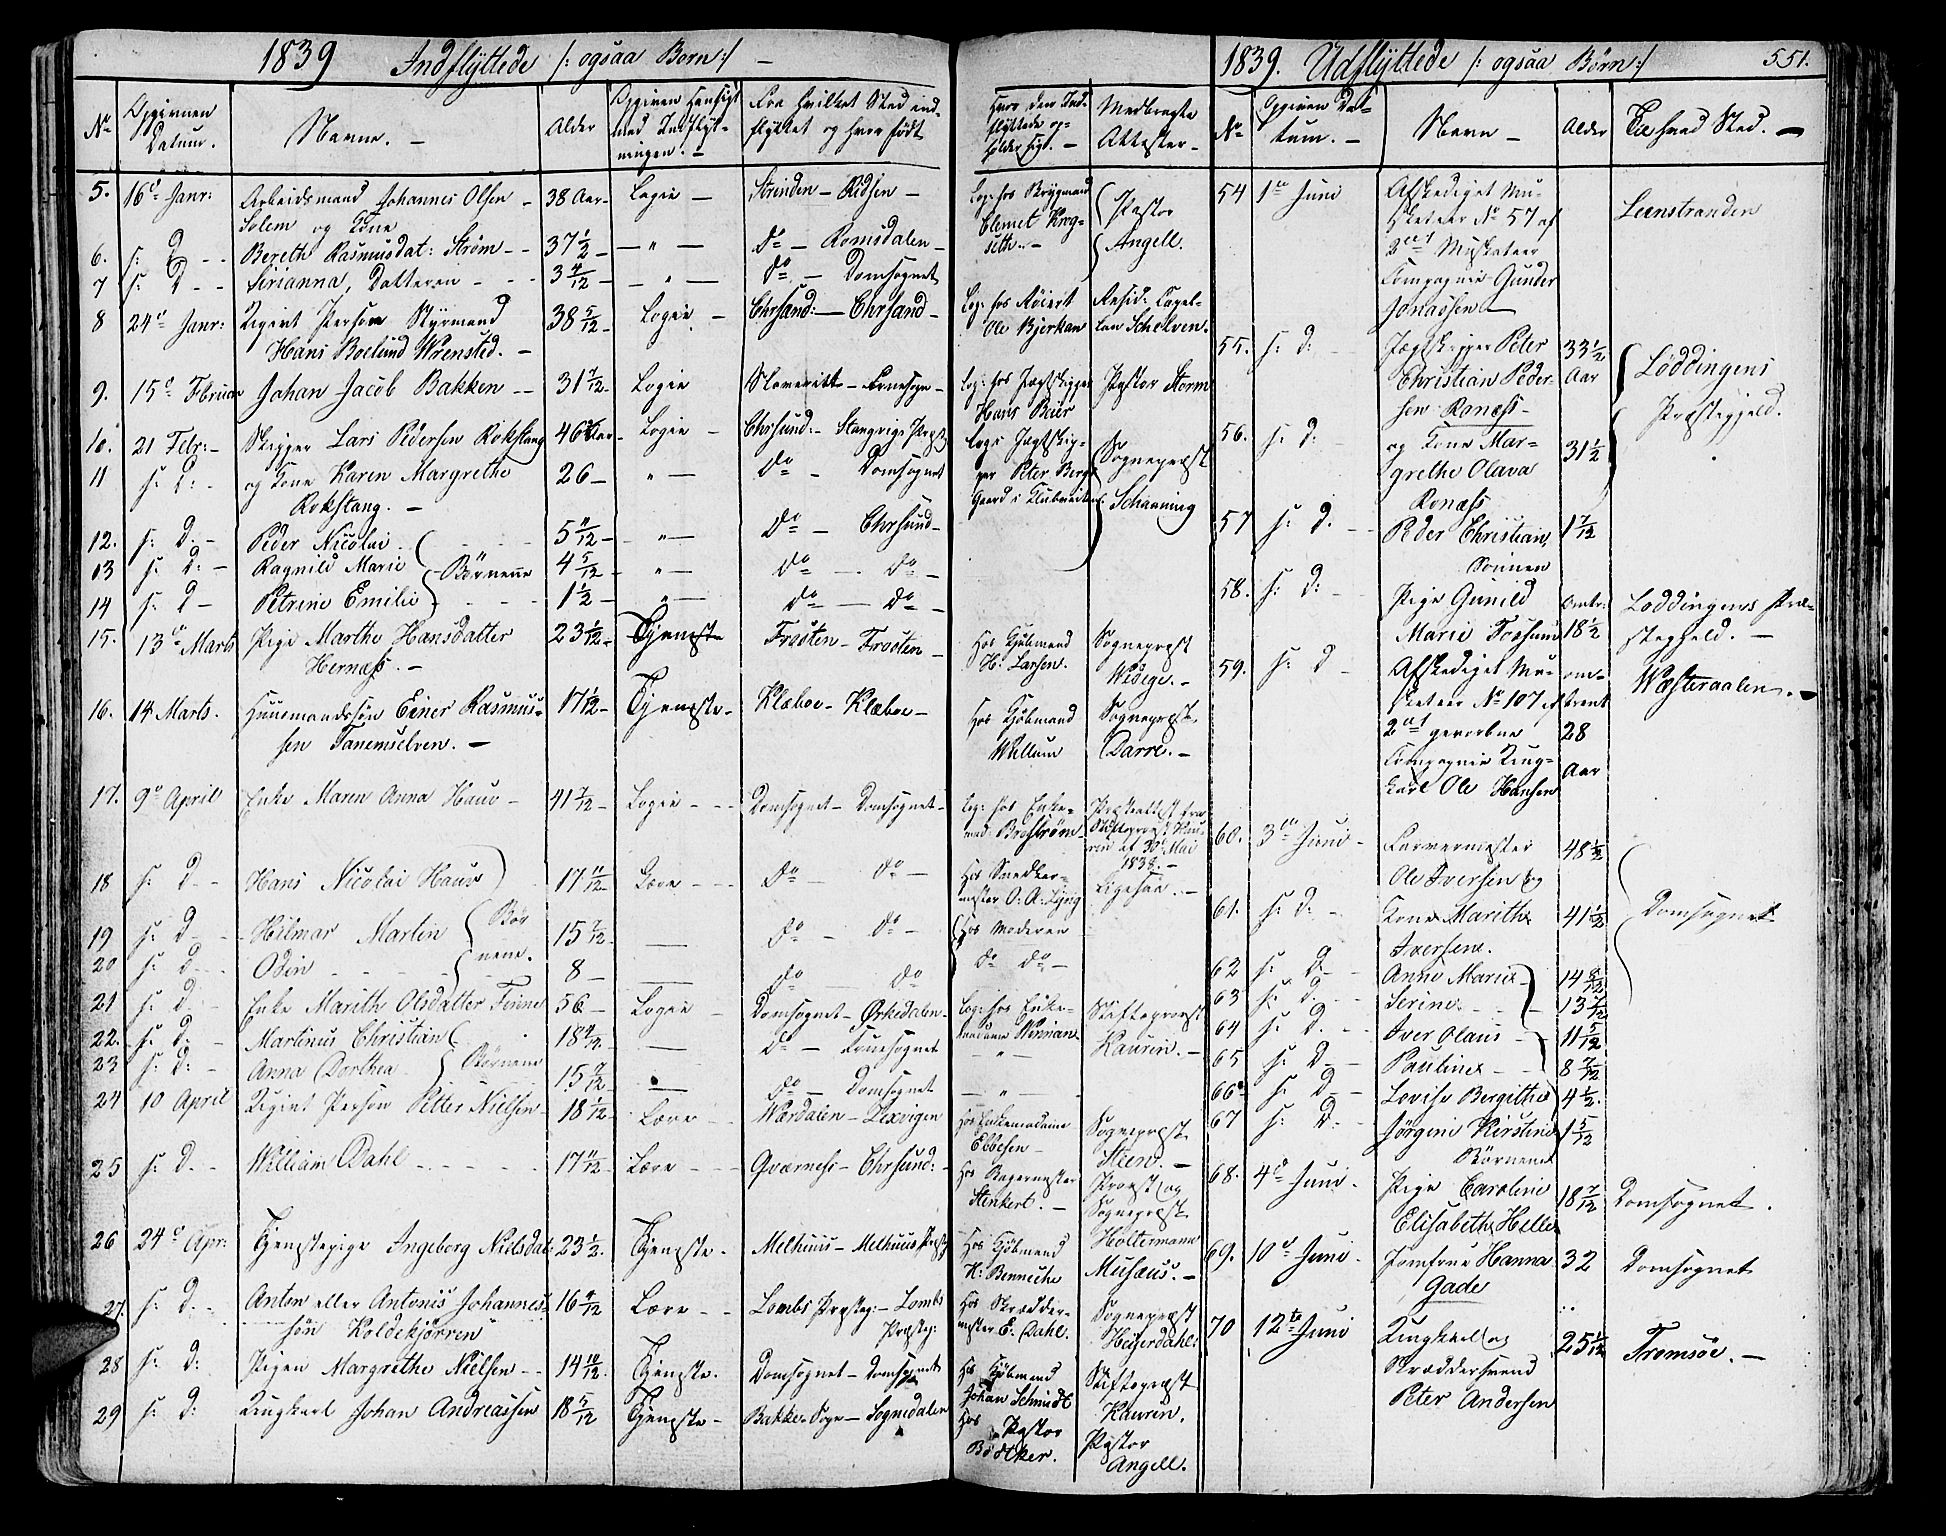 1839 Indflyttede /: ogsaa Børn :/ —
No
Opgivnen Datum.
Navne. —
Alder
Opgiven Hensigt med Indflytningen. —
Fra hvilket Sted indflyttet og hvor født
Hvor den Indflyttede opholder sig. —
Medbragte Attester —
5. 16de Janr: Arbeidsmand Johannes Olsen Solem og Kone 38 Aar — Logie — Strinden —
Log: hos Brygmand Clemet Pastor Angell.
6. s: D — Bereth Rasmusdat: Strøm — 37 1/2 — " — do — Romsdalen —
7 s: D — Sirianna, Datteren — 3 4/12 — " — do — Domsognet
8 24de Janr: Styrmand Hans Boelund Wrensted. — 38 5/12 Logie — Chrsand: — Chrsand —
Log: hos Ole Bjerkan Resid: Capellan Schelven.
9. 15de Februar Johan Jacob Bakken — 31 7/12 — Logie
log: hos Jægtskipper Hans Beier Pastor Storm
10. 21 Febr: — Skipper Lars Pedersen Rokstang 46 Aar — Logie — Chrsund: —
Logi: Jægtskipper Peter Berg Sognepræst Schanning
11 s: D: — og Kone Karen Margrethe Rokstang. — 26 — " — do — Domsognet
12. s: D. — Peder Nicolai 5 11/12 — " — do — Chrsund —
13 s: D: — Ragnild Marie Børnene 4 5/12 — " — do — do —
14 s: D — Petrine Emilie 1 1/2 — " — do — do —
15. 13de Marts Pige Marthe Hansdatter Hernæss. — 23 1/12 — Tjeneste Frosten — Frosten —
Hos Kjøbmand H: Larsen. Sognepræst
16. 14 Marts. Huusmandssøn Einer Rasmussen Tanemselven. — 17 1/12 — Tjeneste — Klæboe — Klæboe —
Hos Kjøbmand Willum Sognepræst Darre. —
17. 9de April Enke Maren Anna Haus — 41 7/12 — Logie — Domsognet — Domsognet —
Log: hos Enkemad: Brostrøm 30de Mai 1838. —
18 s: D — Hans Nicolai Haus 17 11/12 — Lære — do — do —
Hos Snedkermester Ligesaa. —
19 s: D — Hilmar Martin Børnene. 15 7/12 — do — do —
Hos Moderen
20 s: D — Odin — 8 — do — do
do do —
21 s: D — Enke Marith Olsdatter 56 — Logie — Domsognet — Ørkedalen —
Log: hos Enkemadame Stiftsprovst Kaurin. —
22. s: D. Martinus Christian 18 4/12 — do — Fruesognet
23 s: D: — Anna Dorthea Børnene 15 7/12 — do — Domsognet — " —
24 10 April Person Petter Nielsen — 18 1/12 — Lære — Værdalen — Lexvigen
Hos Enkemadame Ebbesen Sognepræst Steen. —
25 s: D. — William Dahl — 17 11/12 — Lære — — Chrsund: —
Hos Bagermester Steinkert. — Provst og Sognepræst Holtermann
26 24de Apr: Tjenestepige Ingeborg Nielsdat: 23 1/2. Tjeneste — Melhuus — Melhuus
Hos Kjøbmand H: Benneche Musæus. —
27. s: D: — Anton eller Antonis Johannessøn Koldekjørren 16 4/12 Lære — Lombs Præsteg: — Lombs Præsteg:
Hos Skræddermester E: Dahl. Sognepræst Heijerdahl:
28 s: D: Pigen Margrethe Nielsen — 14 10/12 — Tjeneste. Domsognet — Domsognet
Hos Kjøbmand Johan Schmidt Stiftsprovst Kaurin.
29 s: D: Ungkarl Johan Andreassen 18 5/12 Tjeneste — Bakke Sogn — Sognedalen
Hos Pastor Bødtker. Pastor Angell.
1839. Udflyttede /: ogsaa Børn :/ 551.
No
Opgiven Datum. —
Navn —
Alder
Til hvad Sted. —
54 1ste Juni Afskediget Musketeer No 57 af 2det Musketeer Compagnie Gunder Jonassen — Leenstranden
55. s: D: — Jægtskipper Peter Christian Pedersen Ronæss — 33 1/2 Aar Løddingens Præstegjeld.
56. s: D: — og Kone Margrethe Olava Ronæss 31 1/2
57 s: D. — Peder Christian, Sønnen 1 7/12
58. s: D: — Pige Gunild Marie 18 1/2 Løddingens Præstegjeld. —
59. s: D — Afskediget Musketeer No 107 af 2det gevorbne Compagnie Ungkarl Ole Hansen omtrent 28 Aar Wæsteraalen. —
60. 3die Juni — Farvermester Ole Iversen og 48 1/2 Domsognet
61. s: D: — Kone Marithe Iversen. 41 1/2
62 s: D. — Anne Marie 14 8/12
63 s: D. — Serine — 13 1/12
64 s: D. — Iver Olaus — 11 5/12
65 s: D — Pauline — 8 7/12
66 s: D — Lovise Bergithe 4 1/2.
67 s: D. — Jørgine Kirstine Børnene 1 5/12
68. 4de Juni — Pige Caroline Elisabeth Helle 18 7/12 Domsognet.
69. 10de Juni — Jomfrue Hanna Gade 32 Domsognet
70 12te Juni Ungkarl og Skræddersvend Peter Andersen 25 1/12 Tromsøe. —